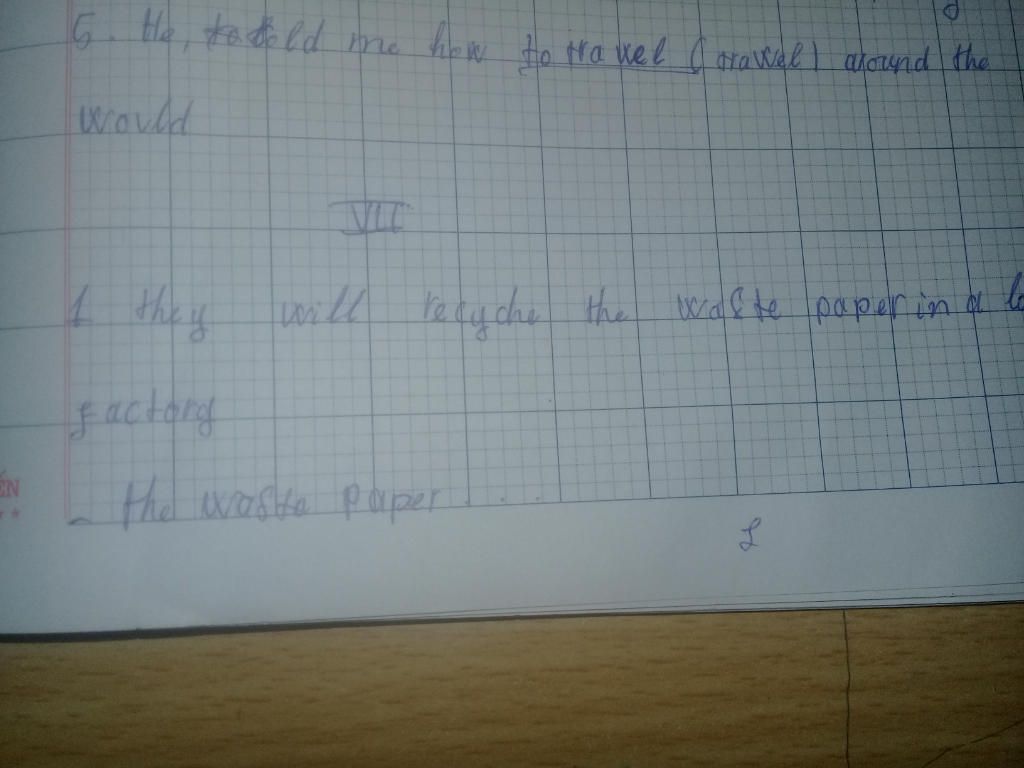 5. He, told me how to travel (travel) around the
would
VII
1 they will recyche the waste paper in a lo
factory
ÊN
- the waste paper . . .